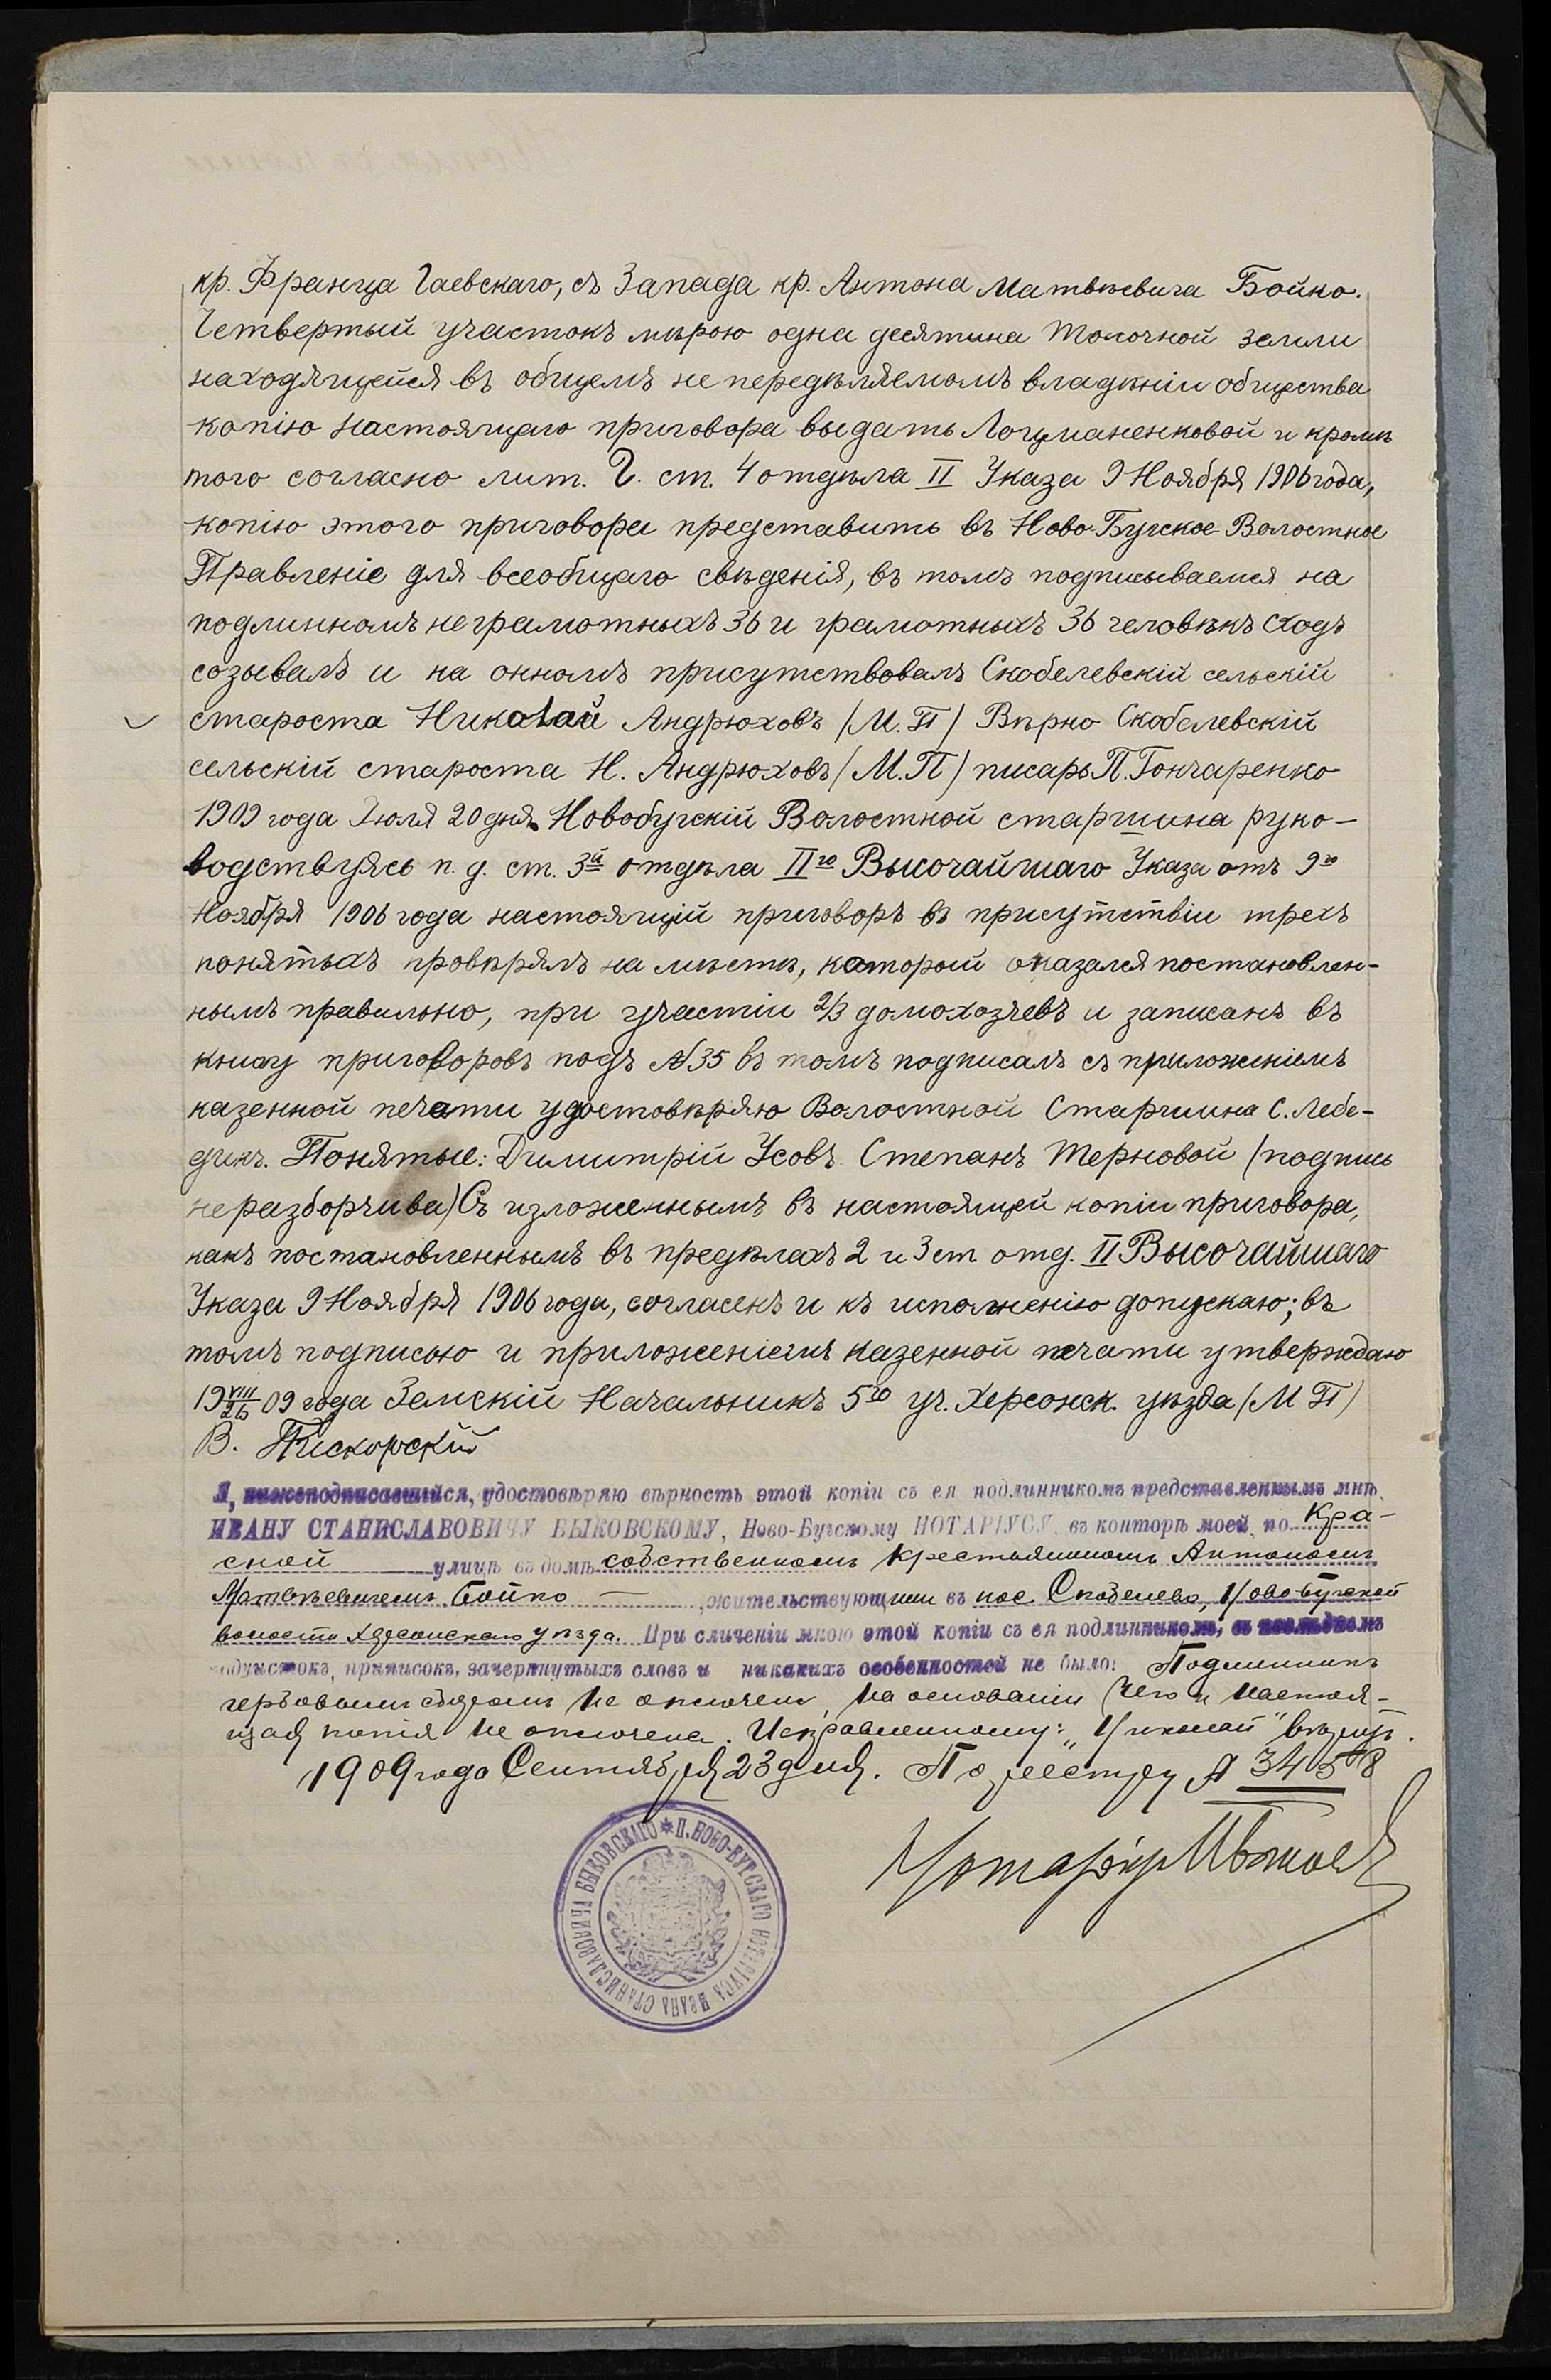 кр. Франца Гаевскаго, съ Запада кр. Антона Матвѣевича Бойко.
Четвертый участокъ мѣрою одна десятина толочной земли
находящейся въ общемъ не передѣляемомъ владѣніи общества
копію настоящаго приговора выдать Логуманенковой и кромѣ
того согласно лит. Г. ст. 4 отдѣла II Указа 9 Ноября 1906 года,
копію этого приговора представить въ Ново-Бугское Волостное
Правленіе для всеобщаго свѣденія, въ томъ подписываемся на
подлинномъ неграмотныхъ 36 и грамотныхъ 36 человѣкъ сходъ
созывалъ и на ономъ присутствовалъ Скобелевскій сельскій
староста Николай Андрюховъ (М.П) Вѣрно Скобелевскій
сельскій староста Н. Андрюховъ (М.П) писарь П. Гончаренко
1909 года Іюля 20 дня. Новобугскій Волостной старшина руко-
водствуясь п. д. ст. 3й отдѣла IIго Высочайшаго Указа отъ 9го
Ноября 1906 года настоящій приговоръ въ присутствіи трехъ
понятыхъ провѣрялъ на мѣстѣ, который оказался постановлен-
нымъ правильно, при участіи 2/3 домохозяевъ и записанъ въ
книгу приговоровъ подъ №35 въ томъ подписалъ съ приложеніемъ
казенной печати удостовѣряю Волостной Старшина С. Лебе-
дикъ. Понятые: Димитрій Усовъ Степанъ Терновой (подпись
неразборчива) Съ изложеннымъ въ настоящей копіи приговора,
какъ постановленнымъ въ предѣлахъ 2 и 3 ст отд. II Высочайшаго
Указа 9 Ноября 1906 года, согласенъ и къ исполненію допускаю; въ
томъ подписью и приложеніемъ казенной печати утверждаю
19 VIII/26 09 года Земскій Начальникъ 5го уч. Херсонск. уѣзда (М П)
В. Пискорскій
Я, нижеподписавшійся, удостовѣряю вѣрность этой копіи съ ея подлинникомъ представленнымъ мнѣ,
ИВАНУ СТАНИСЛАВОВИЧУ БЫКОВСКОМУ, Ново-Бугскому НОТАРІУСУ въ конторѣ моей, по Кра-
сной улицѣ въ домѣ собственномъ крестьяниномъ Антономъ
Матвѣевичемъ Бойко, жительствующимъ въ пос. Скобелево, Новобугской
волости Херсонскаго уѣзда. При сличеніи мною этой копіи съ ея подлинникомъ, въ послѣднемъ
подчистокъ, приписокъ, зачеркнутыхъ словъ и никакихъ особенностей не было: Подлинникъ
гербовымъ сборомъ не оплоченъ, на основаніи чего и настоя-
щая копія не оплочена. Исправленному: „Николай" вѣрить.
1909 года Сентября 23 дня. По реестру №
Нотаріусъ
И. НОВО-БУГСКАГО НОТАРІУСА ИВАНА СТАНИСЛАВОВИЧА БЫКОВСКАГО